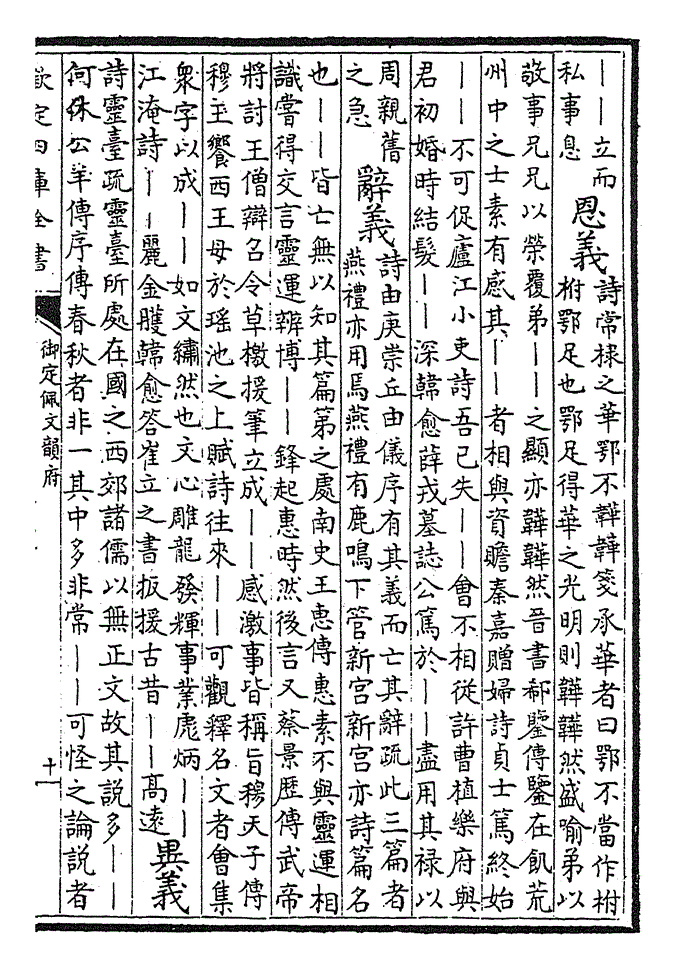 ——立而
私事息
恩義
詩常棣之華鄂不韡韡箋承華者曰鄂不當作柎
柎鄂足也鄂足得華之光明則韡韡然盛喻弟以
敬事兄兄以榮覆弟——之顯亦韡韡然晉書郗鑒傳鑒在飢荒
州中之士素有感其——者相與資贍秦嘉贈婦詩貞士篤終始
——不可促廬江小吏詩吾已失——會不相從許曹植樂府與
君初婚時結髮——深韓愈薛戎墓誌公篤於——盡用其祿以
周親舊
之急
辭義
詩由庚崇丘由儀序有其義而亡其辭疏此三篇者
燕禮亦用焉燕禮有鹿鳴下管新宮新宮亦詩篇名
也——皆亡無以知其篇第之處南史王惠傳惠素不與靈運相
識嘗得交言靈運辨博——鋒起惠時然後言又蔡景歷傳武帝
將討王僧辯召令草檄援筆立成——感激事皆稱旨穆天子傳
穆王饗西王母於瑤池之上賦詩往來——可觀釋名文者會集
衆字以成——如文繡然也文心雕龍發輝事業彪炳——
江淹詩——麗金雘韓愈答崔立之書扳援古昔——高遠
異義
詩靈臺疏靈臺所處在國之西郊諸儒以無正文故其說多——
何休公羊傳序傳春秋者非一其中多非常——可怪之論說者
欽定四庫全書
御定佩文韻府
十一